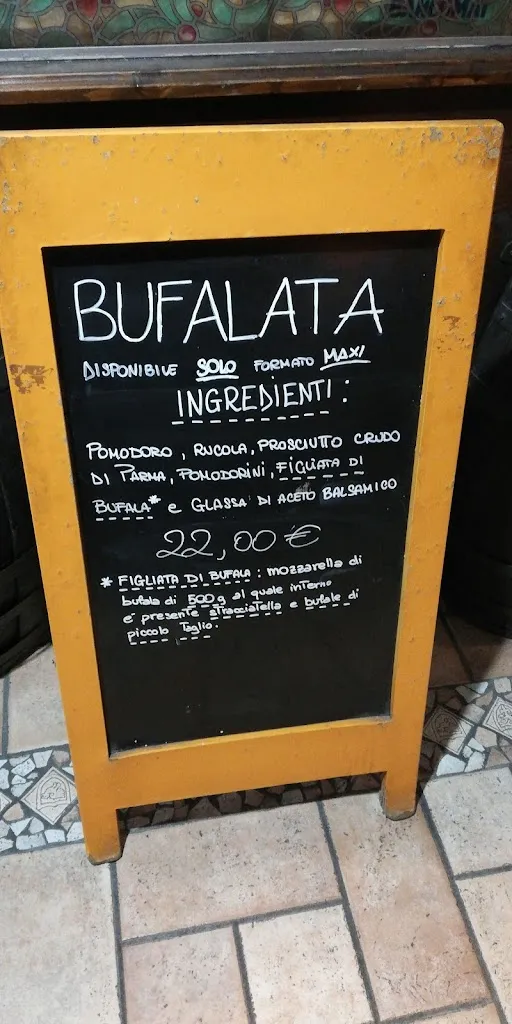 BUFALATA
DISPONIBILE SOLO FORMATO MAXI
INGREDIENTI:
POMODORO, RUCOLA, PROSCIUTTO CRUDO
DI PARMA, POMODORINI, FIGLIATA DI
BUFALA* e GLASSA DI ACETO BALSAMICO
22,00 €
* FIGLIATA DI BUFALA: mozzarella di
bufala di 500g al quale interno
e' presente stracciatella e bufale di
piccolo Taglio.